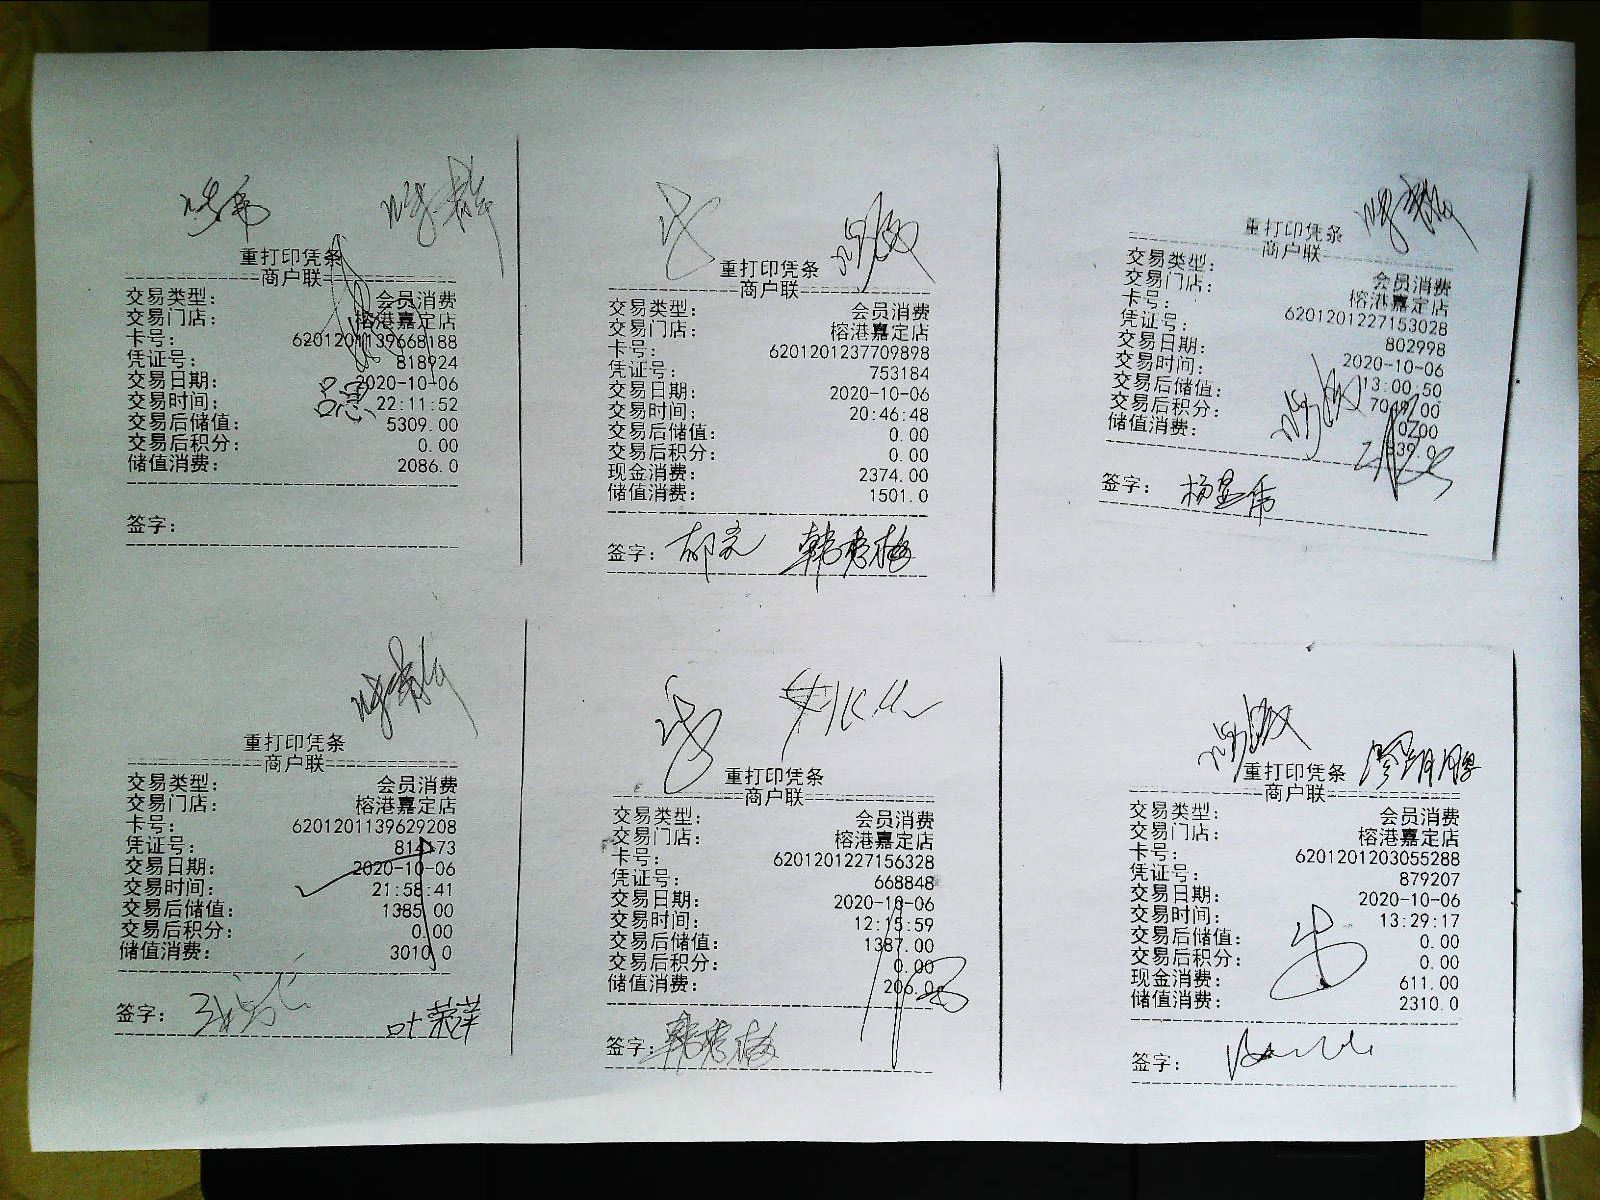 重打印凭条
商户联
交易类型： 会员消费
交易门店： 榕港嘉定店
卡号： 6201201139668188
凭证号： 818924
交易日期： 2020-10-06
交易时间： 22:11:52
交易后储值： 5309.00
交易后积分： 0.00
储值消费： 2086.0
签字：
重打印凭条
商户联
交易类型： 会员消费
交易门店： 榕港嘉定店
卡号： 6201201237709898
凭证号： 753184
交易日期： 2020-10-06
交易时间： 20:46:48
交易后储值： 0.00
交易后积分： 0.00
现金消费： 2374.00
储值消费： 1501.0
签字： 郁亮 韩秀梅
重打印凭条
商户联
交易类型： 会员消费
交易门店： 榕港嘉定店
卡号： 6201201227153028
凭证号： 802998
交易日期： 2020-10-06
交易时间： 13:00:50
交易后储值：
交易后积分： 0.00
储值消费：
签字：
重打印凭条
商户联
交易类型： 会员消费
交易门店： 榕港嘉定店
卡号： 6201201139629208
凭证号：
交易日期： 2020-10-06
交易时间： 21:58:41
交易后储值： 1385.00
交易后积分： 0.00
储值消费： 3010.0
签字：
重打印凭条
商户联
交易类型： 会员消费
交易门店： 榕港嘉定店
卡号： 6201201227156328
凭证号： 668848
交易日期： 2020-10-06
交易时间： 12:15:59
交易后储值： 1387.00
交易后积分： 0.00
储值消费： 206.0
签字： 韩秀梅
重打印凭条
商户联
交易类型： 会员消费
交易门店： 榕港嘉定店
卡号： 6201201203055288
凭证号： 879207
交易日期： 2020-10-06
交易时间： 13:29:17
交易后储值： 0.00
交易后积分： 0.00
现金消费： 611.00
储值消费： 2310.0
签字：